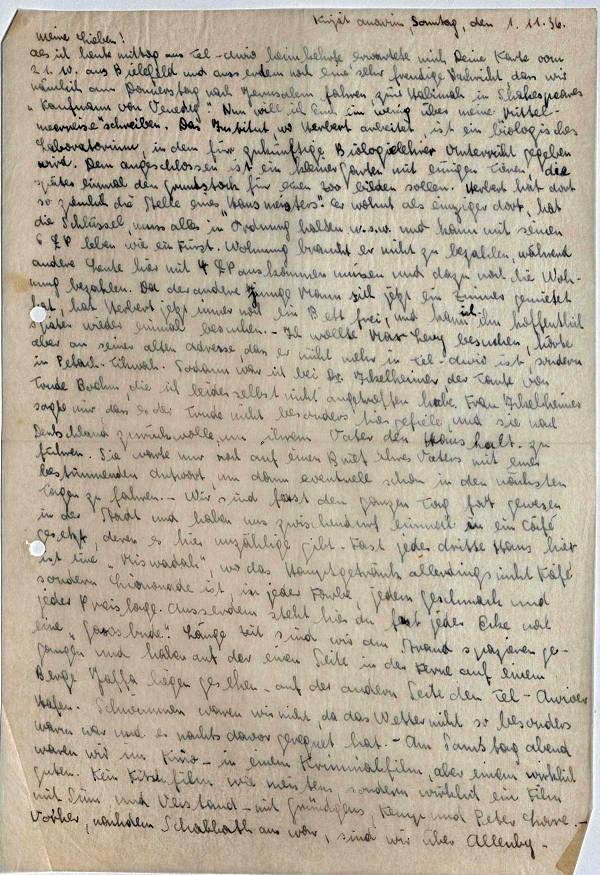 Kirjat anavim, Sonntag, den 1.11.36.
Meine Lieben!
Als ich heute mittag aus Tel-Awiv heimkehrte erwartete mich Deine Karte vom
21.10. aus Bielefeld und ausserdem noch eine sehr freudige Nachricht dass wir
nämlich am Donnerstag nach Jerusalem fahren, zur Habimah in Shakespeares
"Kaufmann von Venedig". Nun will ich Euch ein wenig über meine "Mittel-
meerreise" schreiben. Das Institut, wo Herbert arbeitet, ist ein biologisches
Laboratorium, in dem für zukünftige Biologielehrer Unterricht gegeben
wird. Dem angeschlossen ist ein kleiner Garten mit einigen Tieren, die
später einmal den Grundstock für einen Zoo bilden sollen. Herbert hat dort
so ziemlich die Stelle eines "Hausmeisters" er wohnt als einziger dort, hat
die Schlüssel, muss alles in Ordnung halten u.s.w. und kann mit seinen
6 £P leben wie ein Fürst. Wohnung braucht er nicht zu bezahlen, während
andere Leute hier mit 4 £P auskommen müssen und dazu noch die Woh-
nung bezahlen. Da der andere junge Mann sich jetzt ein Zimmer gemietet
hat, hat Herbert jetzt immer noch ein Bett frei, und kann ich ihn hoffentlich
später wieder einmal besuchen. - Ich wollte Max Levy besuchen, hörte
aber an seiner alten Adresse, dass er nicht mehr in Tel-Awiv ist, sondern
in Petach-Tikwah. Sodann war ich bei Dr. Ichelheimer, der Tante von
Trude Boehm, die ich leider selbst nicht angetroffen habe. Frau Ichelheimer
sagte mir dass es der Trude nicht besonders hier gefiele, und sie nach
Deutschland zurück wolle, um ihrem Vater den Haushalt zu
führen. Sie warte nur noch auf einen Brief ihres Vaters mit einer
bestimmenden Antwort, um dann eventuell schon in den nächsten
Tagen zu fahren. - Wir sind fast den ganzen Tag fort gewesen
in der Stadt und haben uns zwischendurch einmal in ein Café
gesetzt, deren es hier unzählige gibt. Fast jedes dritte Haus hier
ist eine "Miswadah", wo das Hauptgetränk allerdings nicht Kaffe
sondern Limonade ist, in jeder Farbe, jedem Geschmack und
jeder Preislage. Ausserdem steht hier an fast jeder Ecke noch
eine "Gazosbude". Länge Zeit sind wir am Strand spazieren ge-
gangen und haben auf der einen Seite in der Ferne auf einem
Berge Jaffa liegen gesehen - auf der andern Seite den Tel-Awiver
Hafen. Schwimmen waren wir nicht, da das Wetter nicht so besonders
warm war und es nachts davor geregnet hat. - Am Samstag abend
waren wir im Kino - in einem Kriminalfilm, aber einem wirklich
guten. Kein Kitschfilm wie meistens, sondern wirklich ein Film
mit Sinn und Verstand - mit Gründgens, und Peter Lorre. -
Vorher, nachdem Schabbath aus war, sind wir über Allenby-